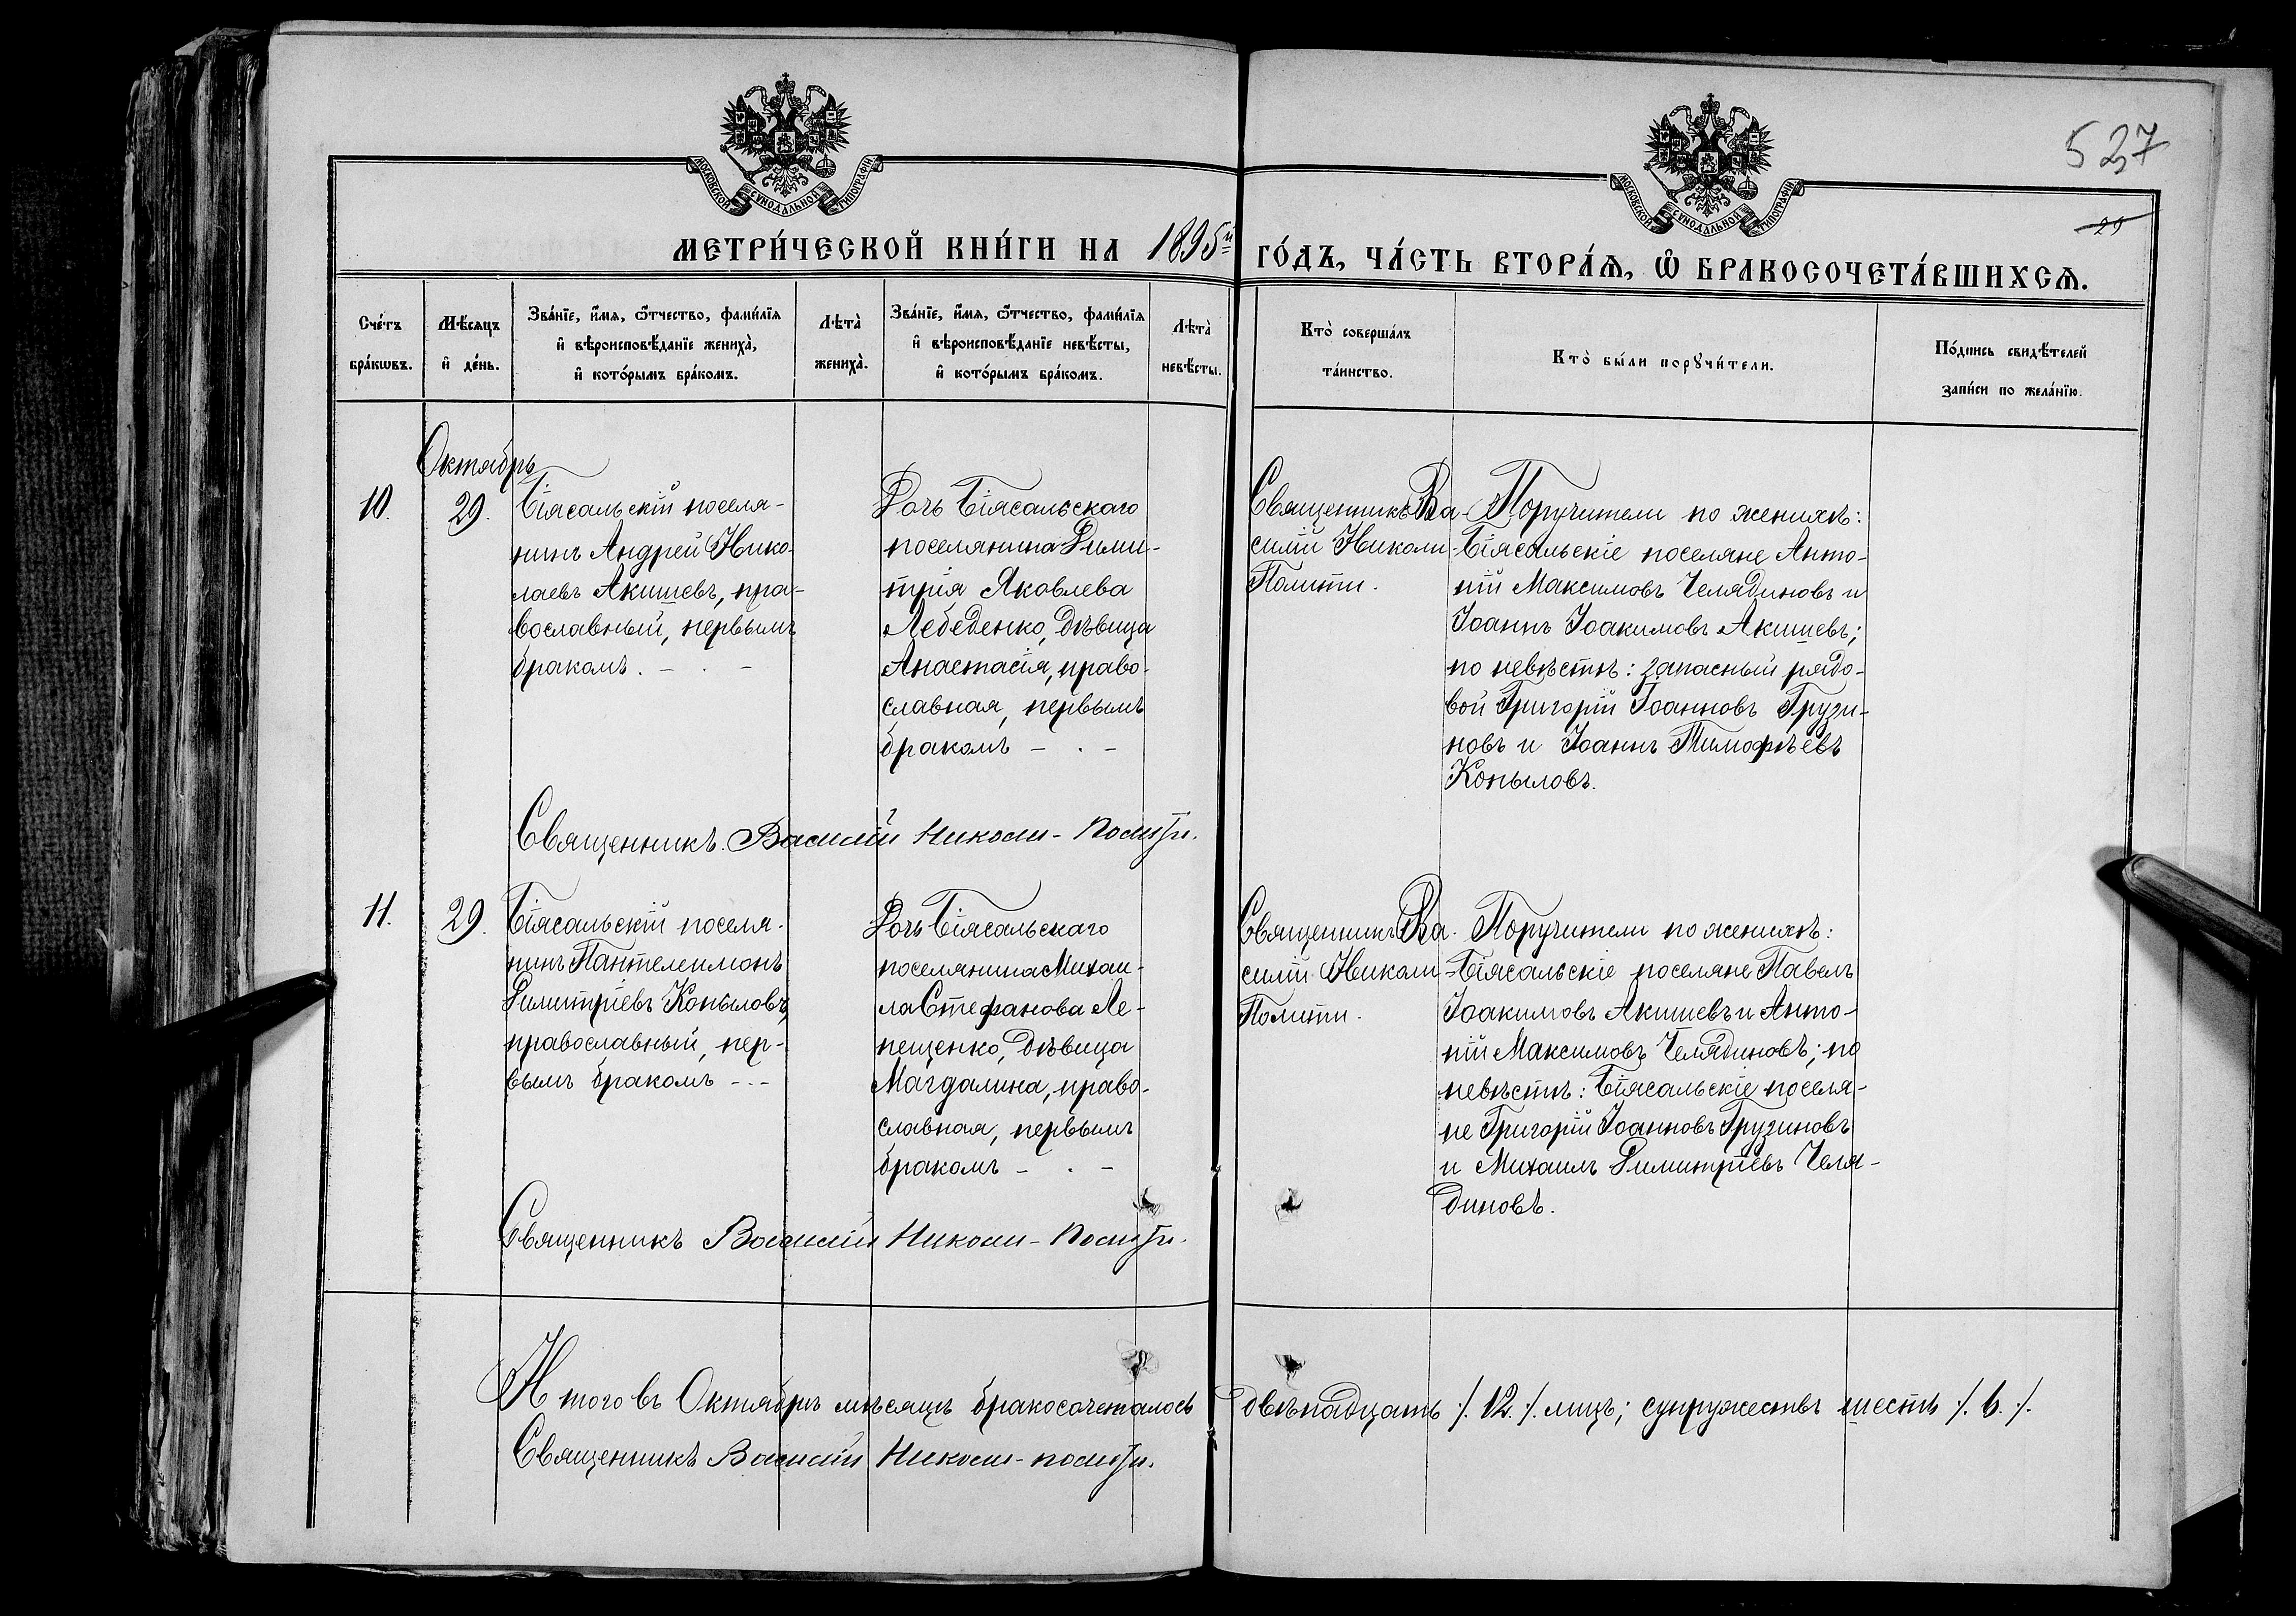 МОСКОВСКОЙ СѴНОДАЛЬНОЙ ТИПОГРАФІИ
МОСКОВСКОЙ СѴНОДАЛЬНОЙ ТИПОГРАФІИ
527
29
МЕТРИ́ЧЕСКОЙ КНИ́ГИ НА 1895й ГО́ДЪ, ЧА́СТЬ ВТОРА́Ѧ, Ѡ҆ БРАКОСОЧЕТА́ВШИХСѦ.
Сче́тъ
бра́кѡвъ.
Мѣ́сяцъ
и҆ де́нь.
Зва́нїе, и҆́мя, ѻ҆́тчество, фами́лїя
и҆ вѣроисповѣ́данїе жениха̀,
и҆ кото́рымъ бра́комъ.
Лѣта̀
жениха̀.
Зва́нїе, и҆́мя, ѻ҆́тчество, фами́лїя
и҆ вѣроисповѣ́данїе невѣ́сты,
и҆ кото́рымъ бра́комъ.
Лѣта̀
невѣ́сты.
Кто̀ соверша́лъ
та́инство.
Кто̀ бы́ли порꙋчи́тели.
По́дпись свидѣ́телей
за́писи по жела́нїю.
Октябрь
10.
29.
Біясальскій поселя-
нинъ Андрей Нико-
лаевъ Акишевъ, пра-
вославный, первымъ
бракомъ. - . -
Дочь Біясальскаго
поселянина Дими-
трія Яковлева
Лебеденко, дѣвица
Анастасія, право-
славная, первымъ
бракомъ - . -
Священникъ Ва-
силій Николи-
Полити.
Поручители по женихѣ:
Біясальскіе поселяне Анто-
ній Максимовъ Челядиновъ и
Іоаннъ Іоакимовъ Акишевъ;
по невѣстѣ: запасный рядо-
вой Григорій Іоанновъ Грузи-
новъ и Іоаннъ Тимофѣевъ
Копыловъ.
Священникъ. Василій Николи-Полити.
11.
29.
Біясальскій поселя-
нинъ Пантелеимонъ
Димитріевъ Копыловъ,
православный, пер-
вымъ бракомъ - . -
Дочь Біясальскаго
поселянина Михаи-
ла Стефанова Ле-
пещенко, дѣвица
Магдалина, право-
славная, первымъ
бракомъ - . -
Священникъ Ва-
силій Николи-
Полити.
Поручители по женихѣ:
Біясальскіе поселяне Павелъ
Іоакимовъ Акишевъ и Анто-
ній Максимовъ Челядиновъ; по
невѣстѣ: Біясальскіе поселя-
не Григорій Іоанновъ Грузиновъ
и Михаилъ Димитріевъ Челя-
диновъ.
Священникъ Василій Николи-Полити.
Итого въ Октябрѣ мѣсяцѣ бракосочеталось двѣнадцать /. 12. /. лицъ; супружествъ шесть /. 6. /.
Священникъ Василій Николи-Полити.